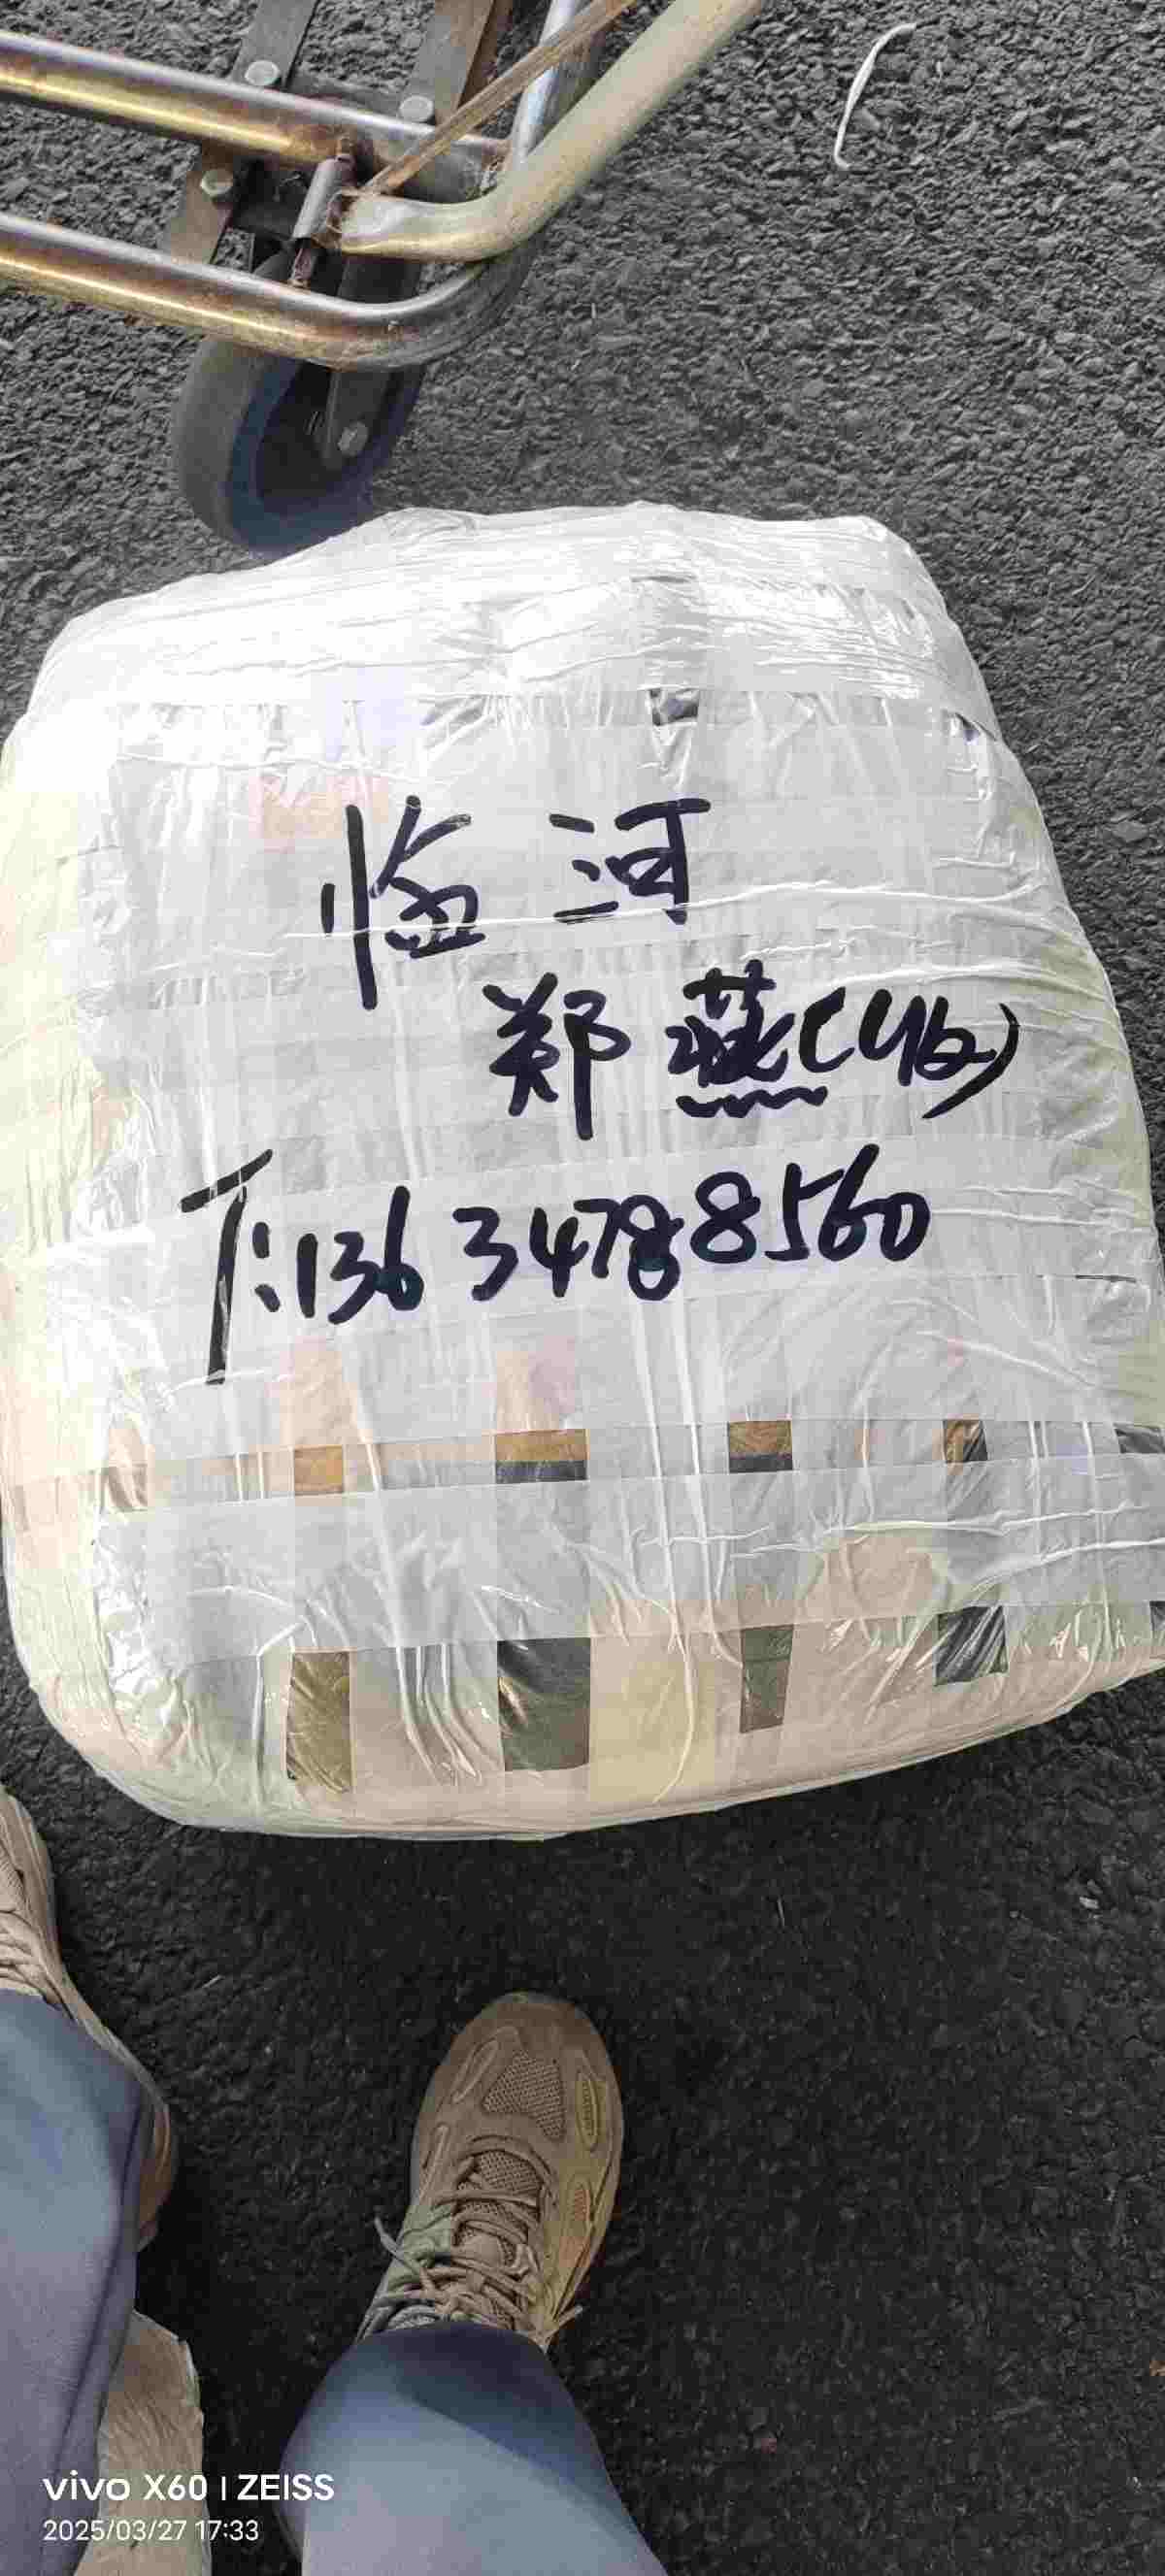 临河
郑燕(收)
T:13634788560
vivo X60 | ZEISS
2025/03/27 17:33